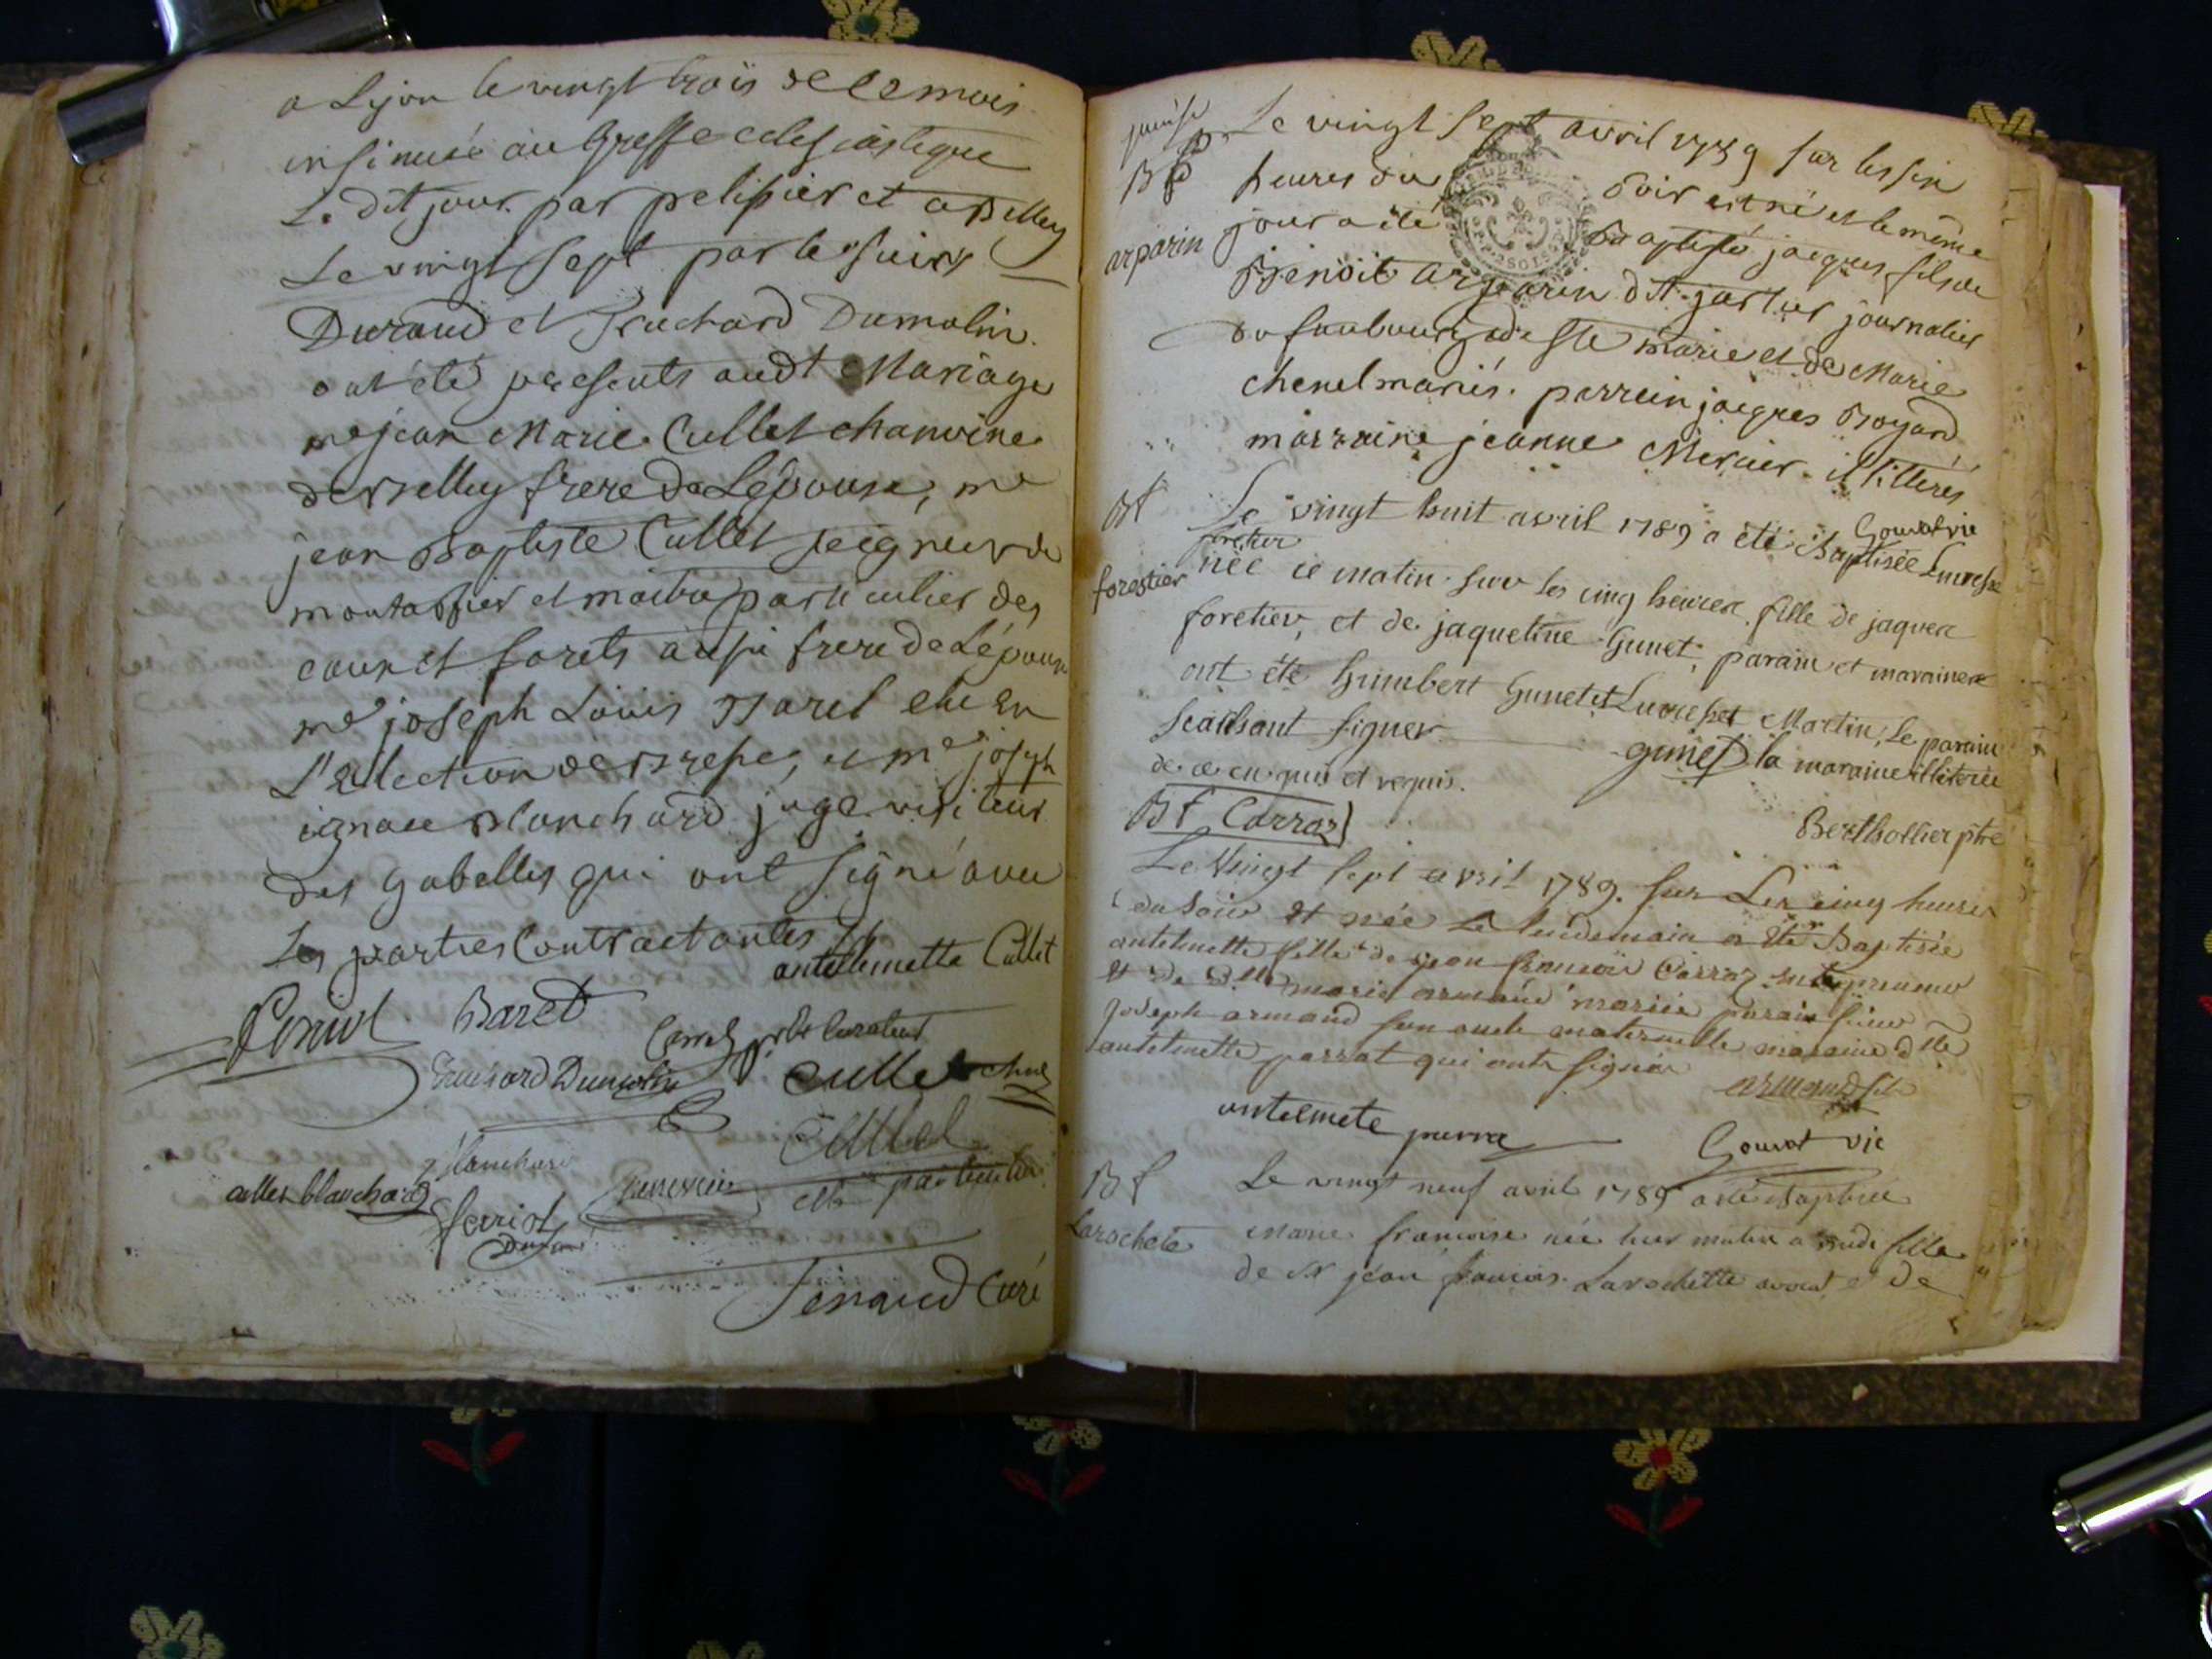 a Lyon le vingt trois de ce mois
insinué au Greffe eclesiastique
Le dit jour par pelissier et a Belley
Le vingt sept par le sieur
Durand et Truchard Dumolin
ont été presents audt Mariage
me jean Marie Cullet chanoine
de Belley frere de Lépouse, me
jean Baptiste Cullet seigneur de
montarfier et maitre particulier des
eaux et forets aussi frere de Lépouse
me joseph Louis Baret elu en
L'Election de Bresse, et me joseph
ignace Blanchard juge visiteur
des gabelles qui ont signé avec
Les parties Contractantes
antelmette Cullet
Baret
Truchard Dumolin
Cullet chne
Cullet
cullet blanchard
Blanchard
me particulier
ferriot
Durand
Jenaud Curé
Le vingt sept avril 1789 sur les six
Bt
heures du soir est né et le même
arparin
jour a été Baptisé jacques fils de
Benoit arparin dit journalier
du faubourg de Ste marie et de Marie
chenel mariés. parrein jacques Boyard
marraine jeanne Mercier. illitterés
Gouvat vic
Bt
Le vingt huit avril 1789 a été Baptisée
forestier
née ce matin sur les cinq heures fille de jaques
foretier, et de jaqueline Gunet, parain et maraine
ont été humbert Gunet et Martin, Le parain
seachant signer gunet la maraine illiterée
de ce enquis et requis.
Berthollier ptre
Bt Carraz
Le Vingt sept avril 1789. sur Les cinq heures
du soir est née et Le lendemain a Eté Baptisée
antelmette fille de jean françois Carraz entrepreneur
et de dlle marie armand mariés parain sieur
joseph armand son oncle maternelle maraine dlle
antelmette parrat qui ont signés
armand fils
antelmete parra
Gouvat vic
Bt
Le vingt neuf avril 1789 a été Baptisée
Larochete
Marie françoise née hier matin a midi fille
de Sr jean françois Larochette avocat et de